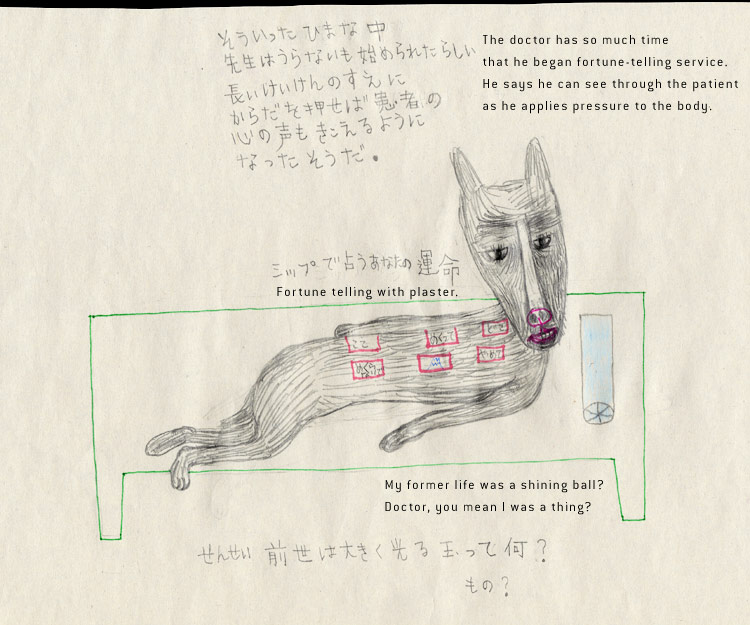 そういったひまな中
先生はうらないも始められたらしい
長いけいけんのすえに
からだを押せば患者の
心の声もきこえるように
なったそうだ。
The doctor has so much time
that he began fortune-telling service.
He says he can see through the patient
as he applies pressure to the body.
シップで占うあなたの運命
Fortune telling with plaster.
ここ
めくって
やめて
My former life was a shining ball?
Doctor, you mean I was a thing?
せんせい 前世は大きく光る玉って何?
もの?